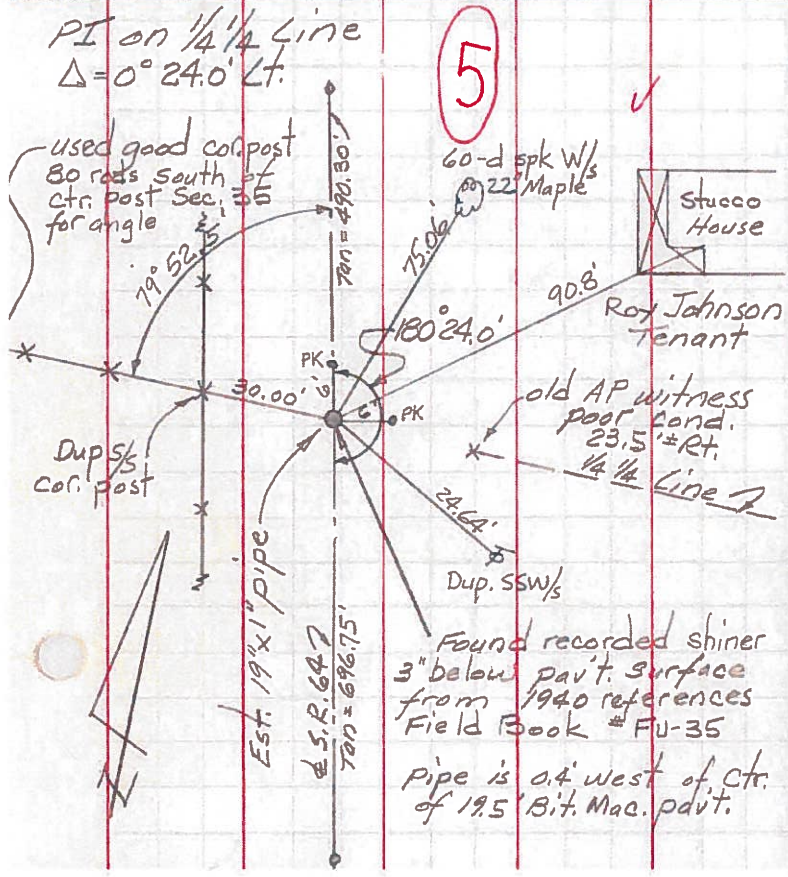 PI on 1/4 1/4 Line
Δ = 0° 24.0' Lt.
5
used good cor. post
80 rods south of
ctr. post Sec. 35
for angle
79° 52.5'
Tan = 490.30'
60-d spk W/s
22" Maple
75.06'
Stucco
House
90.8'
Roy Johnson
Tenant
180° 24.0'
PK
6'
6'
PK
30.00'
old AP witness
poor cond.
23.5'± Rt.
1/4 1/4 Line
Dup S/s
cor. post
24.64'
Dup. SSW/s
Est. 19" x 1" pipe
℄ S.R. 647
Tan = 696.75'
Found recorded shiner
3" below pav't. surface
from 1940 references
Field Book # FU-35
N
Pipe is 0.4' west of Ctr.
of 19.5' Bit. Mac. pav't.